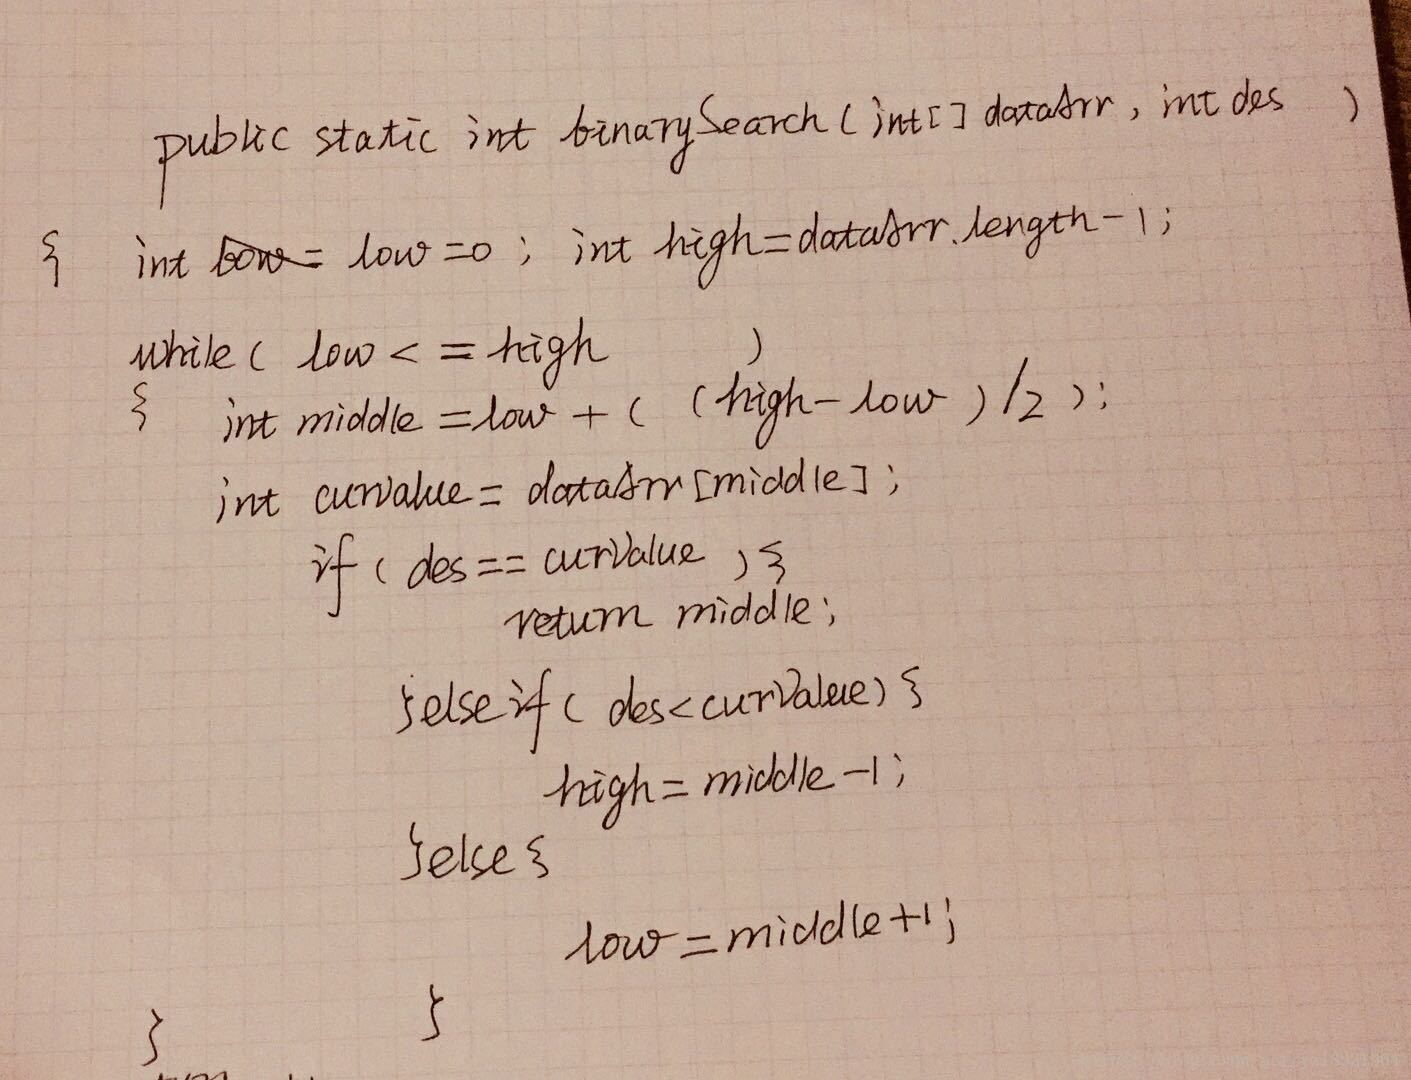 public static int binarySearch(int[] dataArr, int des )
{ int low = 0; int high=dataArr.length-1;
while( low < = high )
{ int middle = low + ( (high-low )/2 );
int curvalue = dataArr[middle];
if( des == curValue ){
return middle;
}else if( des<curValue){
high = middle -1;
}else{
low = middle+1;
}
}